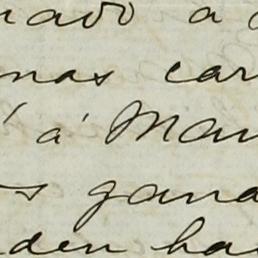 nado a
nas car
á Man
s gana
den ha